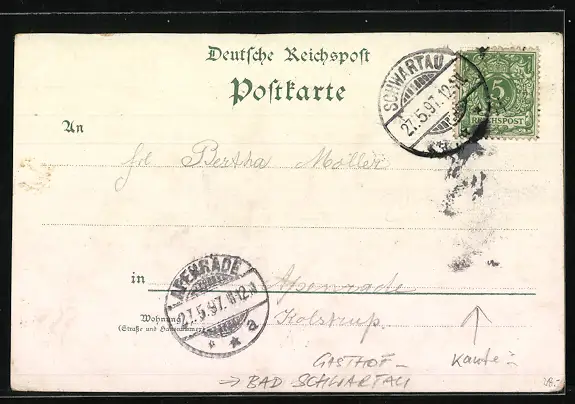 Deutsche Reichspost
Postkarte
SCHWARTAU
27.5.97.12-1N.
5
REICHSPOST
An
Frl Bertha Möller
in Apenrade
APENRADE
27.5.97.
a
Wohnung
(Straße und Hausnummer)
Kolstrup.
GASTHOF -
→ BAD SCHWARTAU
Kante